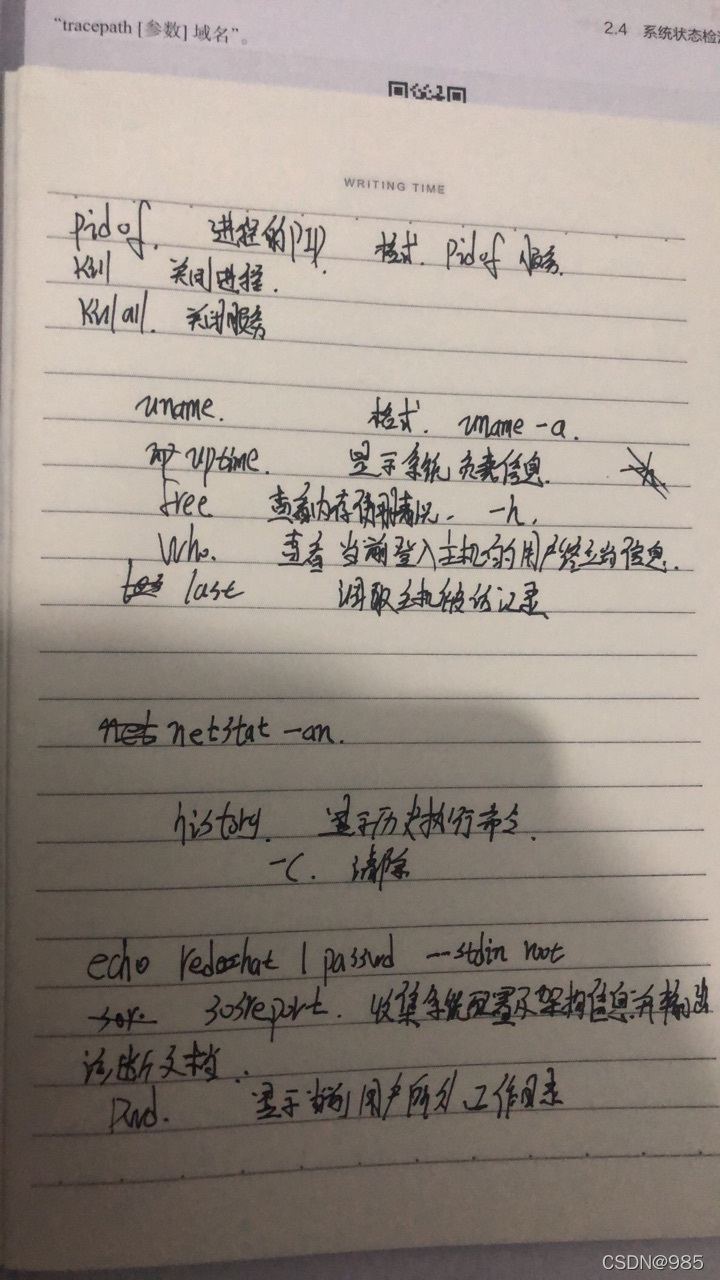 “tracepath [参数] 域名”。
2.4 系统状态检
WRITING TIME
pidof. 进程的PID. 格式. pidof 服务.
Kill 关闭进程.
Killall. 关闭服务
uname. 格式. uname -a.
uptime. 显示系统负载信息.
free 查看内存使用情况. -h.
Who. 查看当前登入主机的用户终端信息.
last 调取主机被访记录
netstat -an.
history. 显示历史执行命令.
-c. 清除
echo | passwd --stdin root
sosreport. 收集系统配置及架构信息并输出
诊断文档.
Pwd. 显示当前用户所处工作目录
CSDN@985